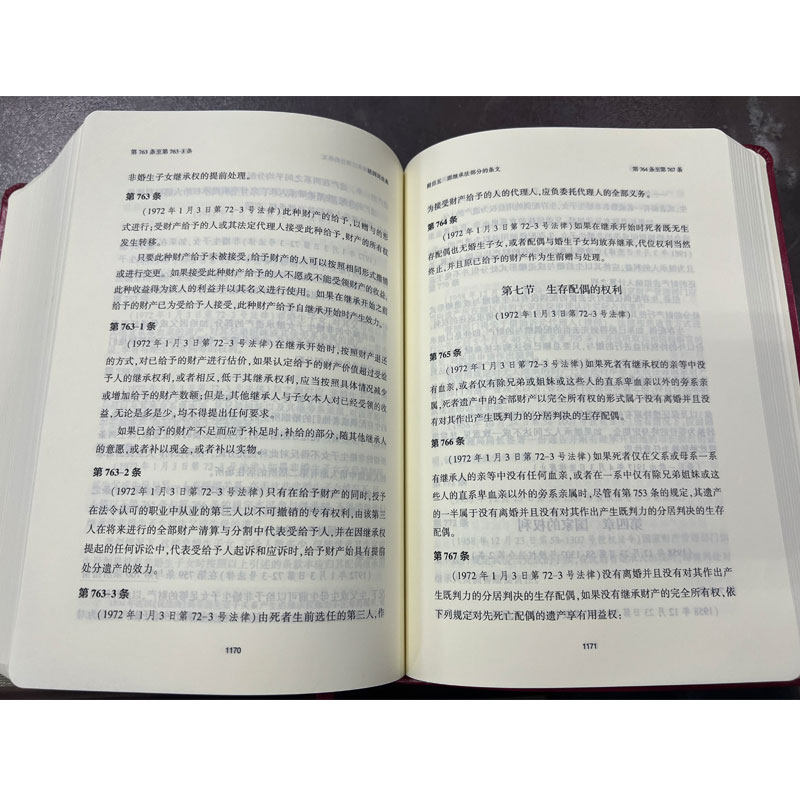 第 763 条至第 763-3 条
非婚生子女继承权的提前处理。
第 763 条
(1972 年 1 月 3 日第 72-3 号法律)此种财产的给予,以赠与的形
式进行;受财产给予的人或其法定代理人接受此种给予,财产的所有权
发生转移。
只要此种财产给予未被接受,给予财产的人可以按照相同形式撤销
或进行变更。如果接受此种财产给予的人不愿或不能受领财产的收益,
此种收益得为该人的利益并以其名义进行使用。如果在继承开始之前
给予的财产已为受给予人接受,此种财产给予自继承开始时产生效力。
第 763-1 条
(1972 年 1 月 3 日第 72-3 号法律)在继承开始时,按照财产返还
的方式,对已给予的财产进行估价,如果认定给予的财产价值超过受给
予人的继承权利,或者相反,低于其继承权利,应当按照具体情况减少
或增加给予的财产数额;但是,其他继承人与子女本人对已经受领的收
益,无论是多是少,均不得提出任何要求。
如果已给予的财产不足而应予补足时,补给的部分,随其他继承人
的意愿,或者补以现金,或者补以实物。
第 763-2 条
(1972 年 1 月 3 日第 72-3 号法律)只有在给予财产的同时,授予
在法令认可的职业中从业的第三人以不可撤销的专有权利,由该第三
人在将来进行的全部财产清算与分割中代表受给予人,并在因继承权
提起的任何诉讼中,代表受给予人起诉和应诉时,给予财产始具有提前
处分遗产的效力。
第 763-3 条
(1972 年 1 月 3 日第 72-3 号法律)由死者生前选任的第三人,作
1170
附目五 原继承法部分的条文
第 764 条至第 767 条
为接受财产给予的人的代理人,应负委托代理人的全部义务。
第 764 条
(1972 年 1 月 3 日第 72-3 号法律)如果在继承开始时死者既无生
存配偶也无婚生子女,或者配偶与婚生子女均放弃继承,代位权利当然
终止,并且原已给予的财产作为生前赠与处理。
第七节 生存配偶的权利
(1972 年 1 月 3 日第 72-3 号法律)
第 765 条
(1972 年 1 月 3 日第 72-3 号法律)如果死者有继承权的亲等中没
有血亲,或者仅有除兄弟或姐妹或这些人的直系卑血亲以外的旁系亲
属,死者遗产中的全部财产以完全所有权的形式属于没有离婚并且没
有对其作出产生既判力的分居判决的生存配偶。
第 766 条
(1972 年 1 月 3 日第 72-3 号法律)如果死者仅在父系或母系一系
有继承人的亲等中没有任何血亲,或者在一系中仅有除兄弟姐妹或这
些人的直系卑血亲以外的旁系亲属时,尽管有第 753 条的规定,其遗产
的一半属于没有离婚并且没有对其作出产生既判力的分居判决的生存
配偶。
第 767 条
(1972 年 1 月 3 日第 72-3 号法律)没有离婚并且没有对其作出产
生既判力的分居判决的生存配偶,如果没有继承财产的完全所有权,依
下列规定对先死亡配偶的遗产享有用益权:
1171